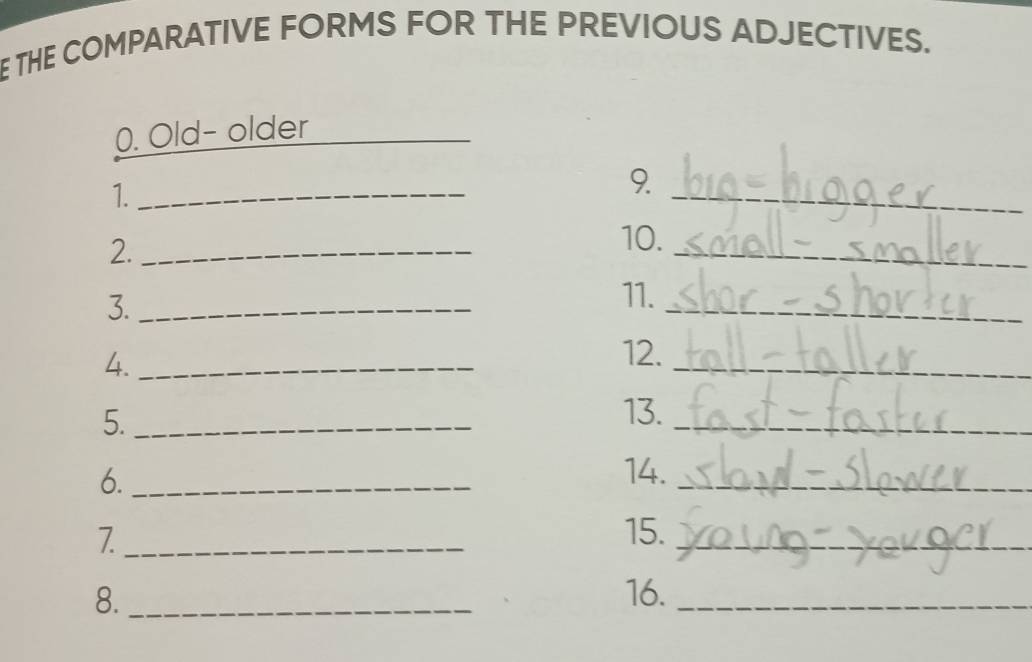 E THE COMPARATIVE FORMS FOR THE PREVIOUS ADJECTIVES.
0. Old- older
1.
2.
3.
4.
5.
6.
7.
8.
9. big - bigger
10. small - smaller
11. shor - shorter
12. tall - taller
13. fast - faster
14. slow - slower
15. young - youger
16.